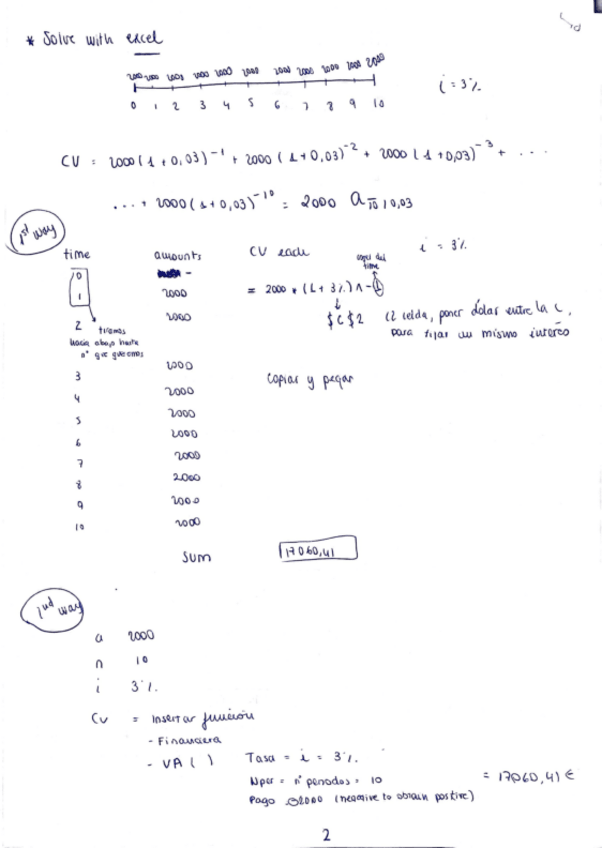 * Solve with excel
2000 2000 2000 2000 2000 2000 2000 2000 2000 2000 2000
0 1 2 3 4 5 6 7 8 9 10
i = 3%
CV = 2000(1+0,03)^-1 + 2000(1+0,03)^-2 + 2000(1+0,03)^-3 + ...
... + 2000(1+0,03)^-10 = 2000 a 10|0,03
1st way
time amounts CV each i = 3%
0 -
1 2000 = 2000 * (1+3%)^-1
time
2 2000 $C$2 celda, poner dolar entre la C,
para fijar un mismo interés
tiramos
hacia abajo hasta
nº que queramos
3 2000
copiar y pegar
4 2000
5 2000
6 2000
7 2000
8 2000
9 2000
10 2000
Sum 17060,41
2nd way
a 2000
n 10
i 3%
CV = Insertar función
- Financiera
- VA ( ) Tasa = i = 3%
Nper = nº periodos = 10 = 17060,41 €
Pago -2000 (negative to obtain positive)
2